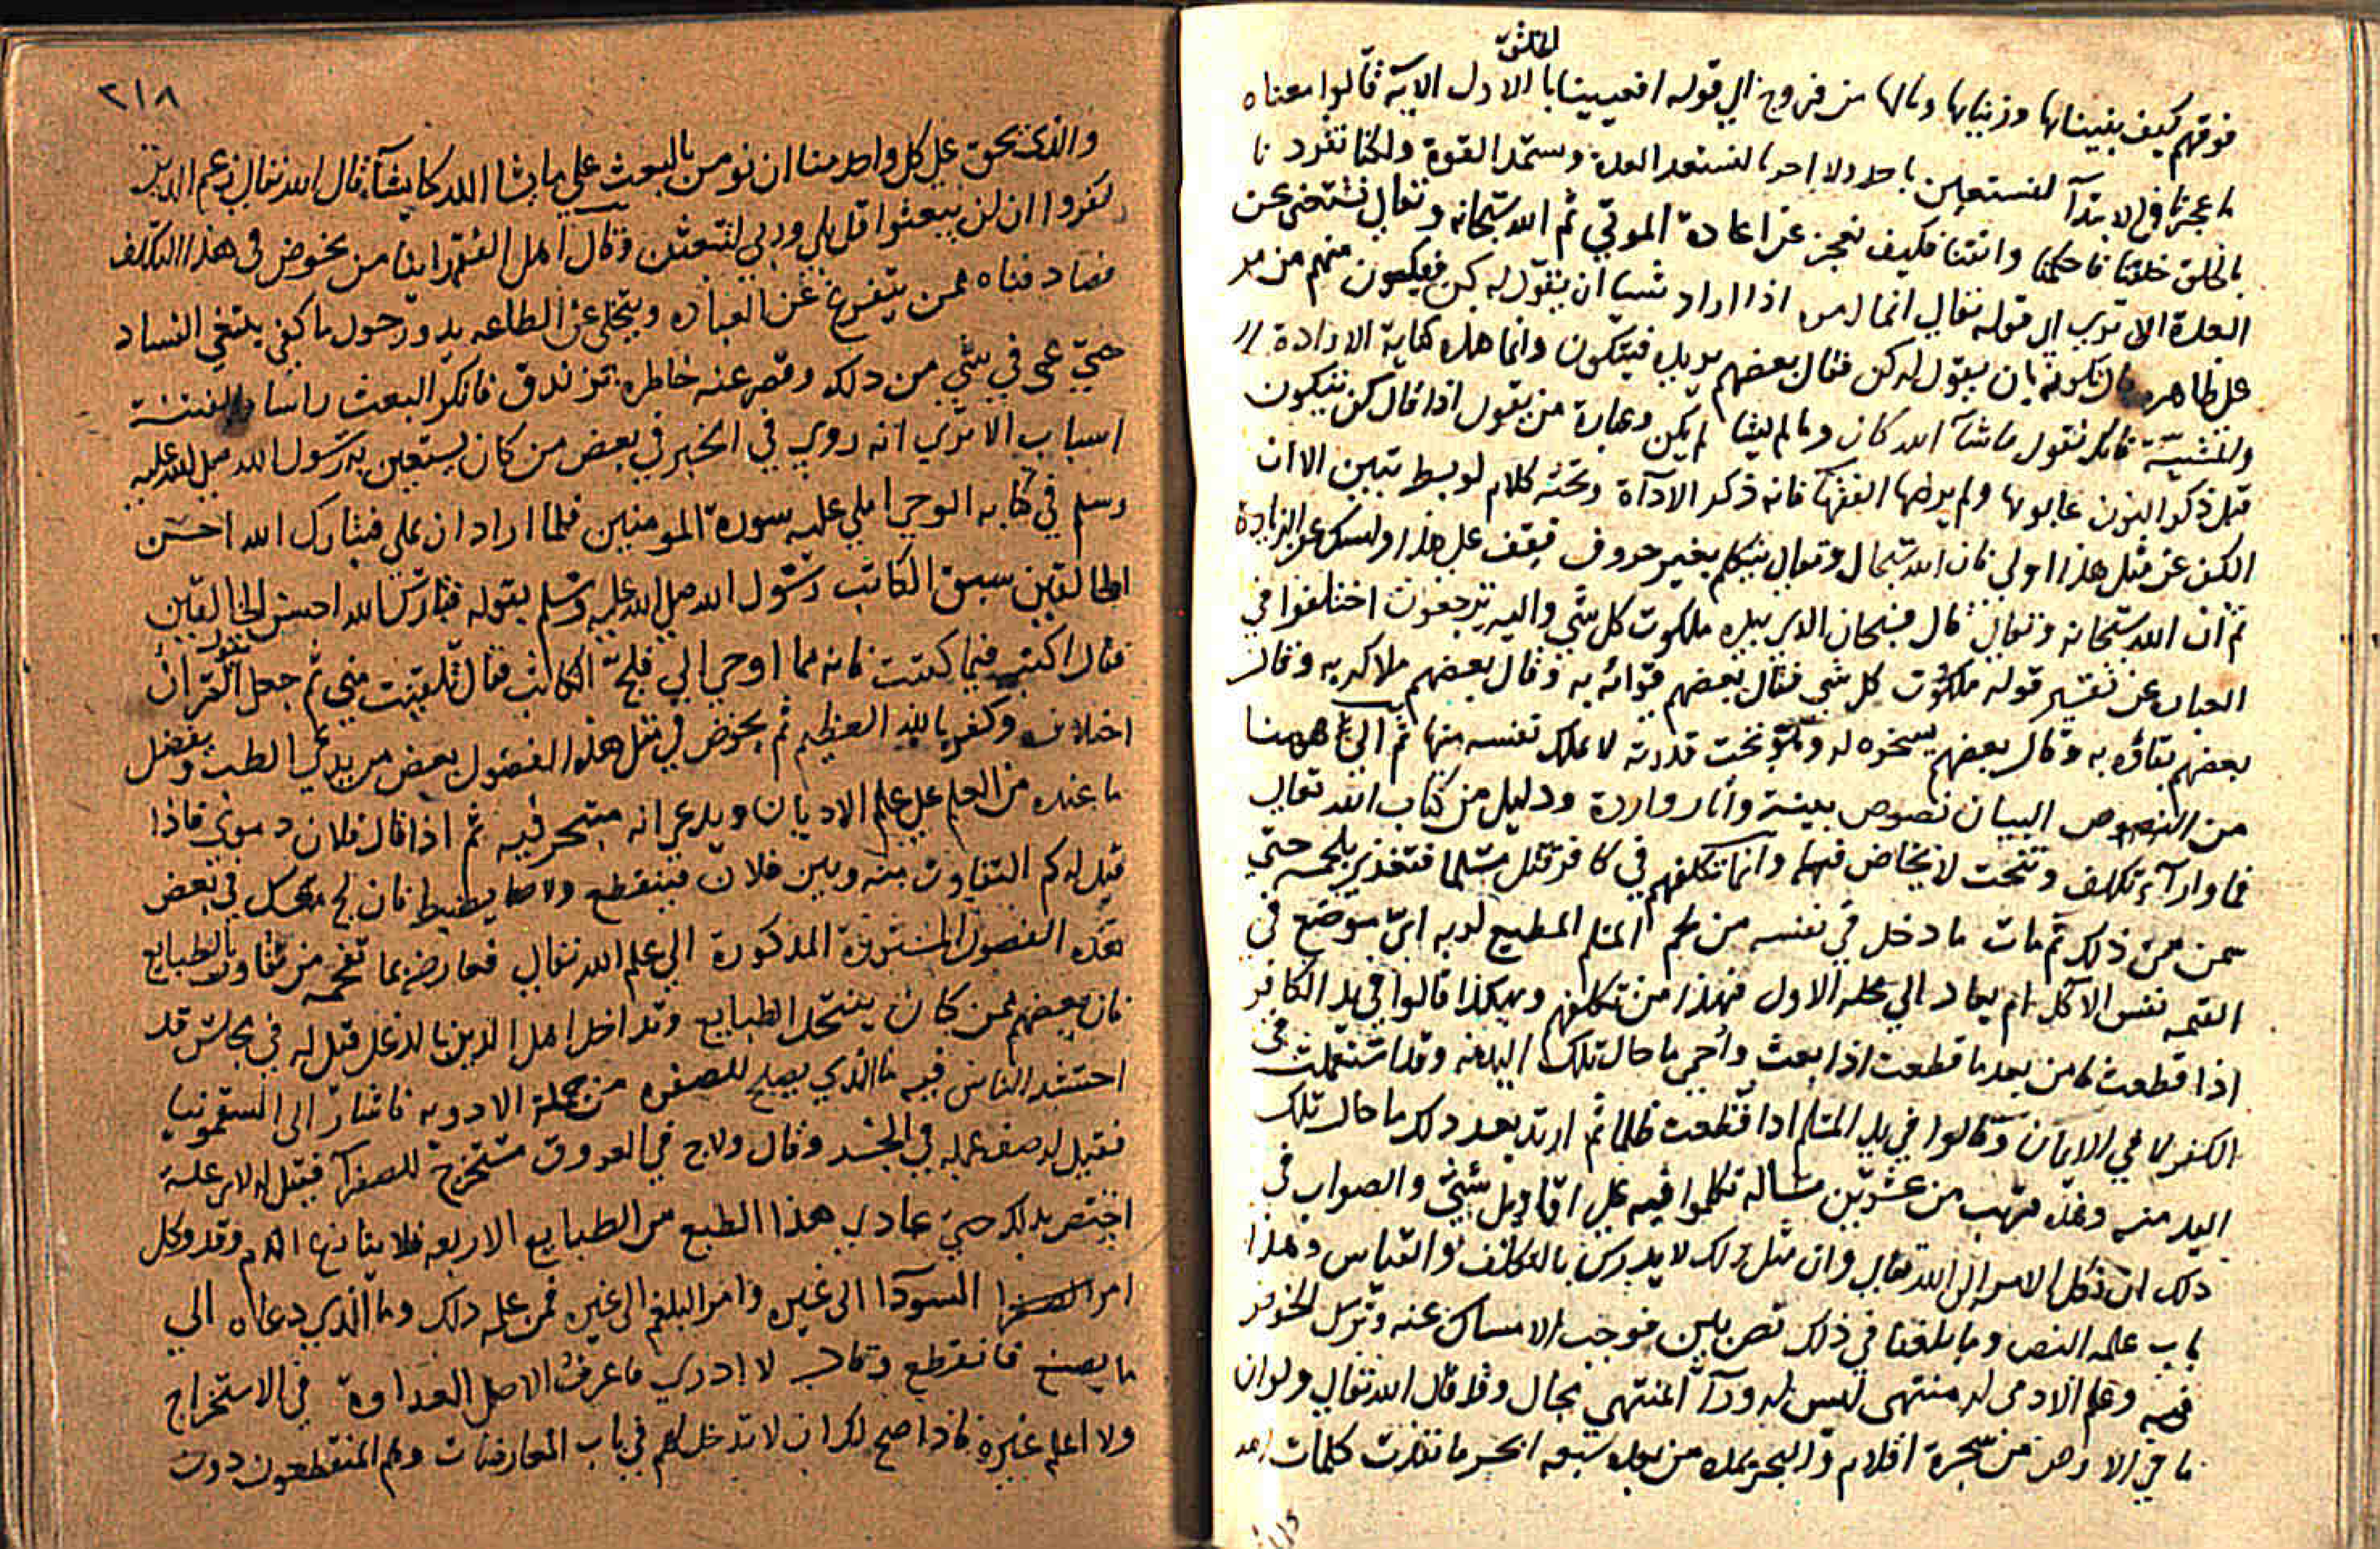 بالخلق
فوقهم كيف بنيناها وزيناها ومالها من فروج الي قوله افعيينا بالاول الاية قالوا معناه
ما عجزنا في الابتدآ لنستعين باحد ولا احد نا لنستعد العدة ونستمد القوة ولكنا تفرد نا
بالخلق خلقنا فاحكمنا واتقنا فكيف نعجز عن اعادة الموتي ثم الله سبحانه وتعالي مستغني عن
العدة الا تري الي قوله تعالي انما امره اذا اراد شيا ان يقول له كن فيكون منهم من مر
علي ظاهره قال تكونه بان يقول له كن فقال بعضهم يريده فيتكون وانما هذه كناية الارادة
والمشيّة فانك تقول ماشآ الله كان وما لم يشا لم يكن وعبارة من يقول اذا قال كن فيكون
قبل ذكر النون عابوها ولم يرضها الفقها فانه ذكر الاداة وتحته كلام لو بسط تبين الا ان
الكف عن مثل هذا اولي فان الله سبحانه وتعالي يتكلم بغير حروف فيقف علي هذا وليسك عن الزيادة
ثم ان الله سبحانه وتعالي قال فسبحان الذي بيده ملكوت كل شي واليه ترجعون اختلفوا في
العباره عن تفسير قوله ملكوت كل شي فقال بعضهم قوامه به وقال بعضهم ملاكه به وقال
بعضهم بقاؤه به وقال بعضهم يسخره له وهو تحت قدرته لا يملك نفسه منها ثم الي ههنا
من النصوص البيان نصوص بينة وآثار واردة ودليل من كتاب الله تعالي
فما وراء تكلف وتنحت لا يخاض فيها وانما تكلفهم في كافر قتل مسلما فتغذي بلحمه حتي
سمن من ذلك ثم مات ما دخل في نفسه من لحم المسلم المطيع لربه اين يوضع في
القيمة نفس الاكل ام يعاد الي محله الاول فهذا من تكلفهم وهكذا قالوا في يد الكافر
اذا قطعت فامن بعد ما قطعت اذا بعث واحي ما حال تلك اليد منه وقد استعملت في
الكفر لا في الايمان وقالوا في يد المسلم اذا قطعت ظلما ثم ارتد بعد ذلك ما حال تلك
اليد منه وهذه قريب من عشرين مسالة تكلموا فيه علي اقاويل شتي والصواب في
ذلك ان تكل الامر الي الله تعالي وان مثل ذلك لا يدرك بالتكلف والقياس وهذا
باب علمه النص وما بلغنا في ذلك نص يلين فوجب الامساك عنه وترك الخوض
فيه وعلم الادمي له منتهي ليس له ورآ المنتهي مجال وقد قال الله تعالي ولو ان
ما في الارض من شجرة اقلام والبحر يمده من بعده سبعة ابحر ما نفدت كلمات الله
٢١٨
والذي يحق علي كل واحد منا ان نومن بالبعث علي ما يشا الله كما يشآ قال الله تعالي زعم الذين
كفروا ان لن يبعثوا قل بلي وربي لتبعثن وقال اهل الفقه راينا من يخوض في هذا التكلف
فصادفناه ممن يتفرغ عن العباده ويتخلي عن الطاعه يدور حول ما كفي يبتغي الفساد
حتي عمي في شي من ذلك وقصر عنه خاطره تزندق فانكر البعث راسا وللفتنة
اسباب الا تري انه روي في الخبر في بعض من كان يستعين به رسول الله صلي الله عليه
وسلم في كتابه الوحي املي عليه سورة المومنين فلما اراد ان يملي فتبارك الله احسن
الخالقين سبق الكاتب رسول الله صلي الله عليه وسلم بقوله فتبارك الله احسن الخالقين
فقال اكتب فيما كتبت فانه مما اوحي الي فلج الكاتب فقال تلقيت مني ثم جعل يقول القران
اختلاف وكفر بالله العظيم ثم يخوض في مثل هذه الفصول بعض من يدعي الطب ويفضل
ما عنده من العلم علي علم الاديان ويدعي انه متبحر فيه ثم اذا قال فلان دموي فاذا
قيل له كم التفاوت بينه وبين فلان فينقطع ولا يضبط فان لج متكل في بعض
هذه الفصول المستورة المذكورة الي علم الله تعالي فعارضه بما تفحمه من تفاوت الطبايع
فان بعضهم ممن كان ينتحل الطبايع وقد اخل اهل الدين بالدغل قيل له في مجلس قد
احتشد الناس فيه ما الذي يصلح للصفره من جملة الادويه فاشار الي السقمونيا
فقيل له صف عمله في الجسد وقال ولاج في العروق مستخرج للصفرآ فقيل له لاي علة
اختص بذلك حتي عادي هذا الطبع من الطبايع الاربعه فلا ينازع الدم وقد وكل
امر السودآ الي غيره وامر البلغم الي غيره فمن علمه ذلك وما الذي دعاه الي
ما يصنع فانقطع وقال لا ادري ما عرف الاصل العداوة في الاستخراج
ولا اعلم غيره فاذا صح لك ان لا تدخل لهم في باب المعارضات وهم المنقطعون دون